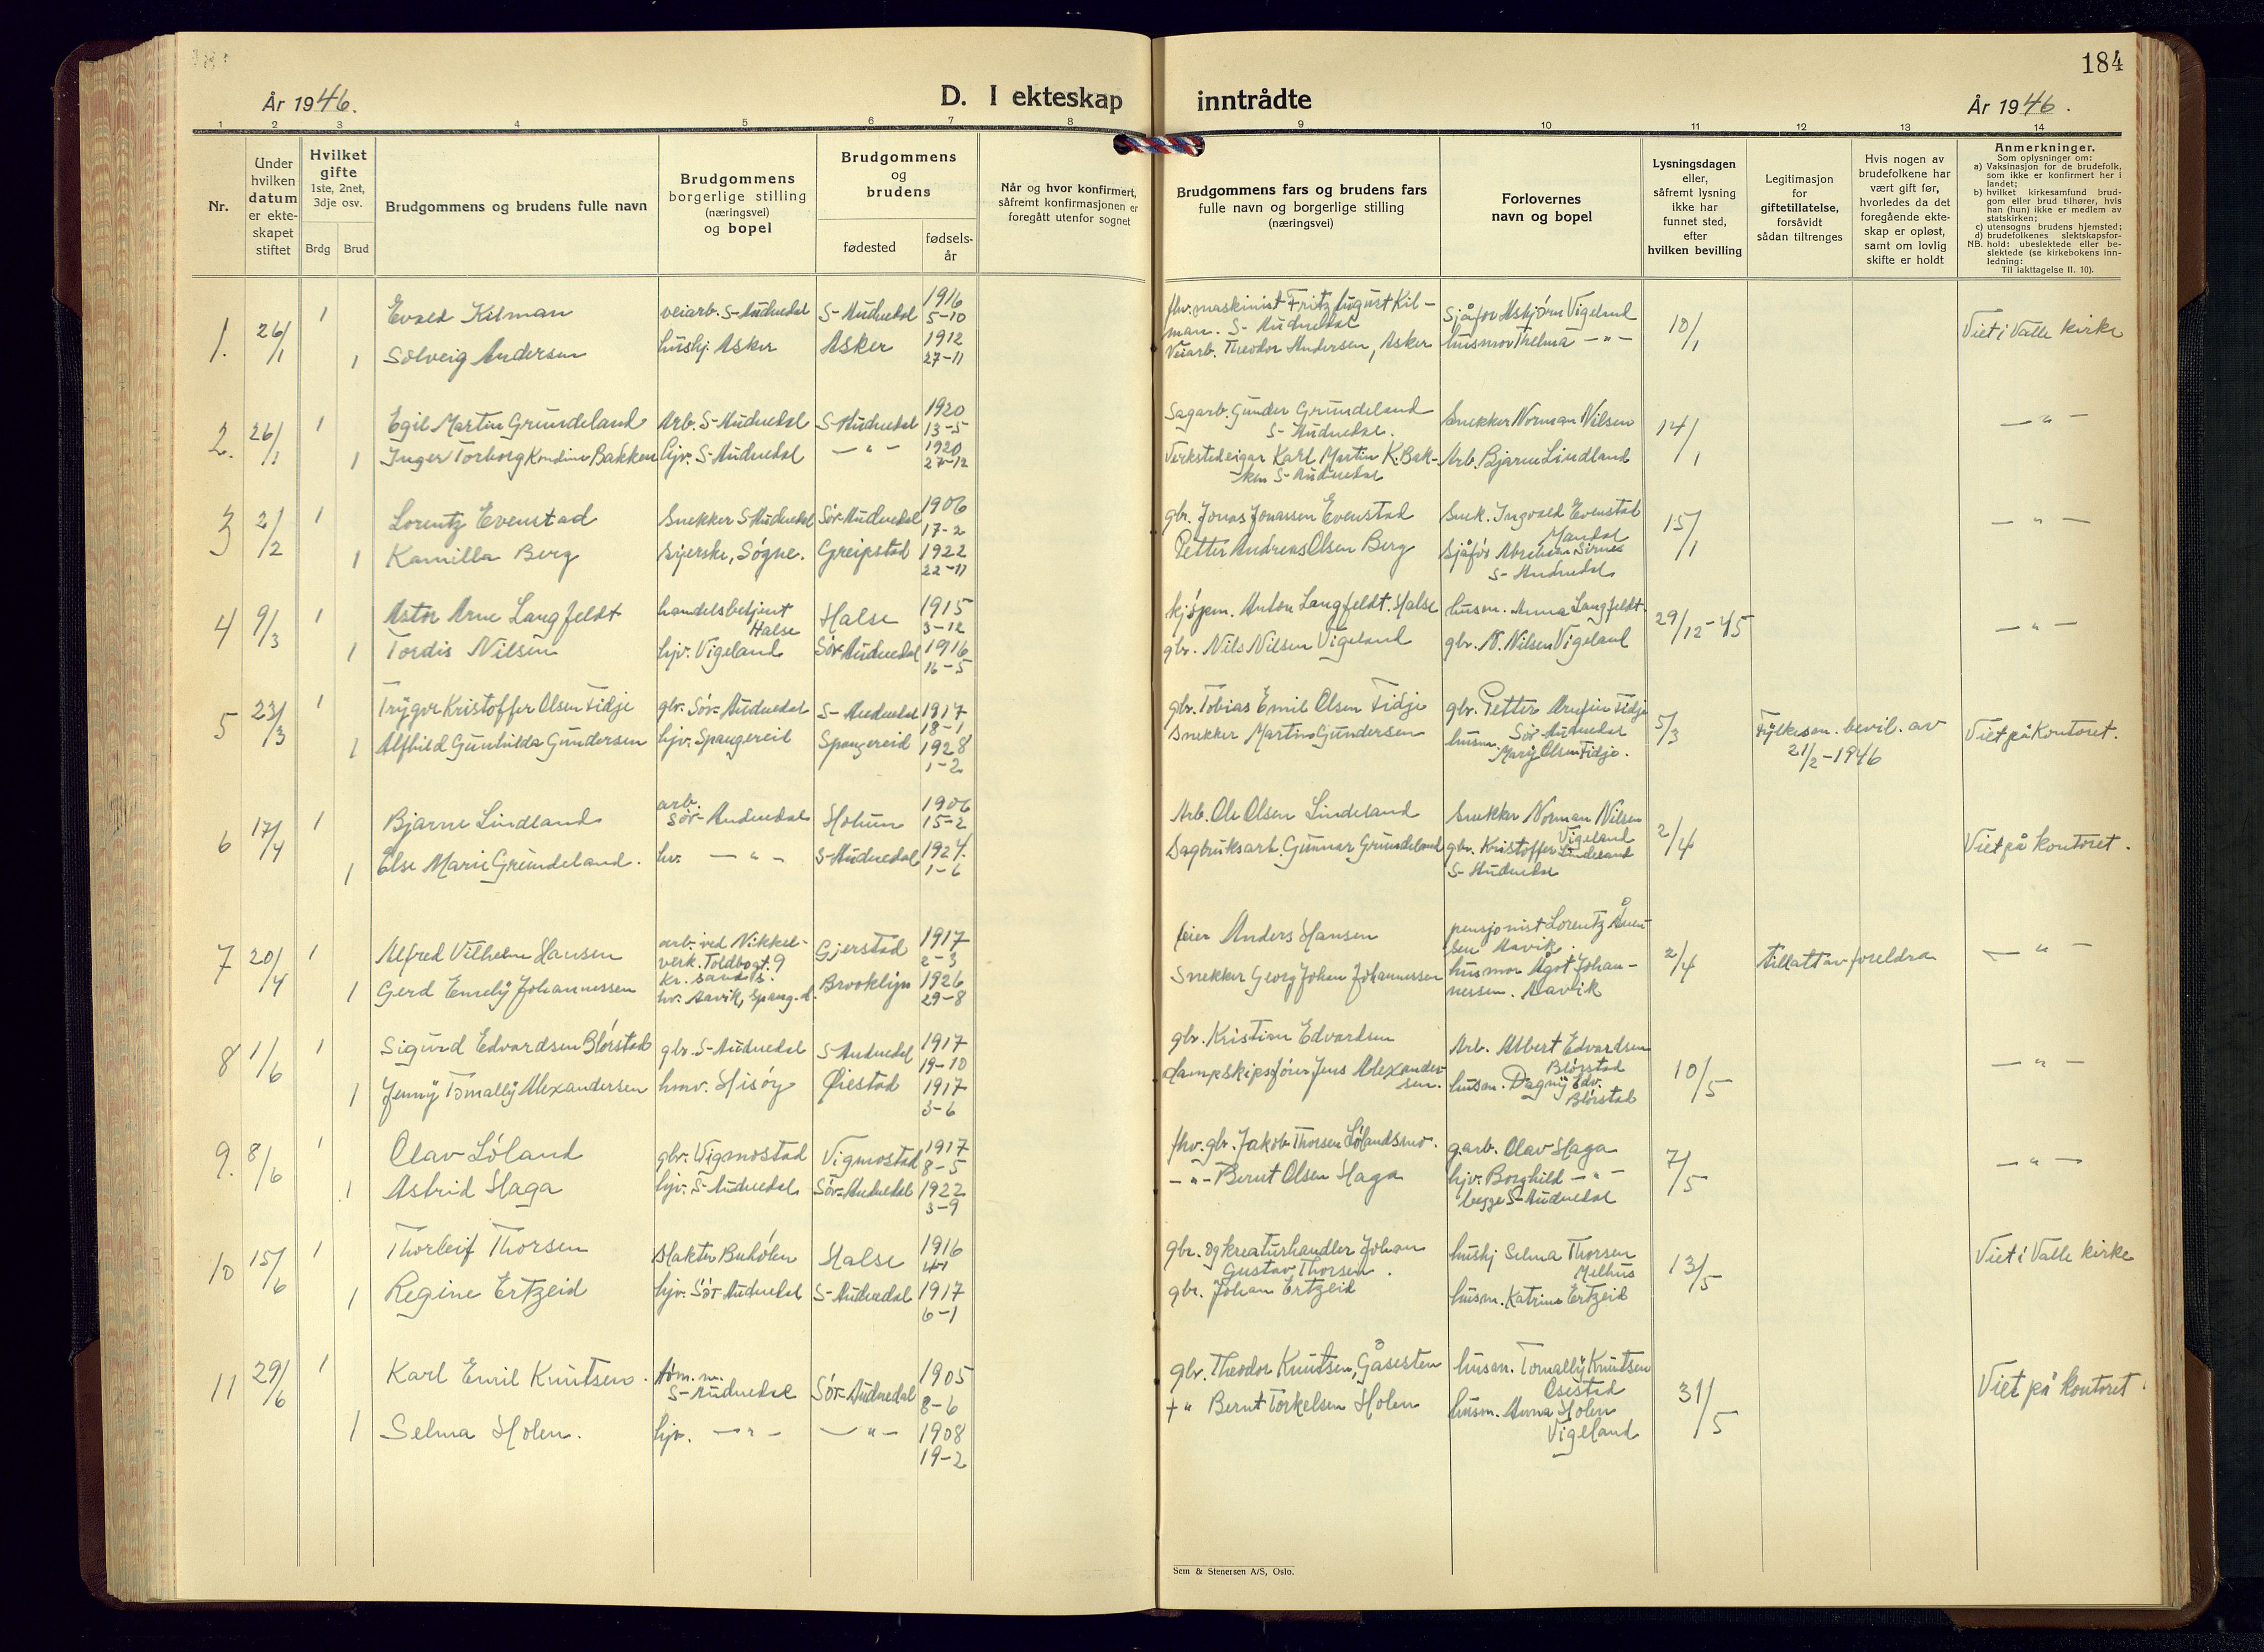 184
År 1946.
D. I ekteskap inntrådte
År 1946.
1 2 3 4 5 6 7 8 9 10 11 12 13 14
Nr.
Under hvilken datum er ekteskapet stiftet
Hvilket gifte 1ste, 2net, 3dje osv.
Brdg Brud
Brudgommens og brudens fulle navn
Brudgommens borgerlige stilling (næringsvei) og bopel
Brudgommens og brudens
fødested
fødsels-år
Når og hvor konfirmert, såfremt konfirmasjonen er foregått utenfor sognet
Brudgommens fars og brudens fars fulle navn og borgerlige stilling (næringsvei)
Forlovernes navn og bopel
Lysningsdagen eller, såfremt lysning ikke har funnet sted, efter hvilken bevilling
Legitimasjon for giftetillatelse, forsåvidt sådan tiltrenges
Hvis nogen av brudefolkene har vært gift før, hvorledes da det foregående ekteskap er opløst, samt om lovlig skifte er holdt
Anmerkninger.
Som oplysninger om:
a) Vaksinasjon for de brudefolk, som ikke er konfirmert her i landet;
b) hvilket kirkesamfund brudgom eller brud tilhører, hvis han (hun) ikke er medlem av statskirken;
c) utensogns brudens hjemsted;
d) brudefolkenes slektskapsforhold: ubeslektede eller beslektede (se kirkebokens innledning:
NB. Til iakttagelse II. 10).
1. 26/1 1 Evald Kilman veiarb. S-Audnedal S-Audnedal 1916 5-10 fhv. maskinist Fritz August Kilman. S-Audnedal Sjåfør Asbjørn Vigeland 10/1 Viet i Valle kirke
1 Solveig Andersen hushj. Asker Asker 1912 27-11 Veiarb. Theodor Andersen, Asker husmor Thelma -"-
2. 26/1 1 Egil Martin Grundeland Arb. S-Audnedal S-Audnedal 1920 13-5 Sagarb. Gunder Grundeland S-Audnedal. Snekker Norman Nilsen 14/1 -"-
1 Inger Torborg Kondine Bakken hjv. S-Audnedal -"- 1920 27-12 Verkstedeigar Karl Martin K. Bakken S-Audnedal Arb. Bjarne Lindland
3 2/2 1 Lorentz Evenstad Snekker S-Audnedal Sør-Audnedal 1906 17-2 gbr. Jonas Jonassen Evenstad Snek. Ingvald Evenstad Mandal 15/1 -"-
1 Kamilla Berg Syerske, Søgne. Greipstad 1922 22-11 Petter Andreas Olsen Berg Sjåfør Abraham S-Audnedal
4 9/3 1 Astor Arne Langfeldt handelsbetjent Halse Halse 1915 3-12 kjøpm. Anton Langfeldt. Halse husm. Anna Langfeldt 29/12-45 -"-
1 Tordis Nilsen hjv. Vigeland Sør-Audnedal 1916 16-5 gbr. Nils Nilsen Vigeland gbr. N. Nilsen Vigeland
5 23/3 1 Trygve Kristoffer Olsen Tidje gbr. Sør-Audnedal S-Audnedal 1917 18-1 gbr. Tobias Emil Olsen Tidje gbr. Petter Arnfin Tidje Sør-Audnedal 5/3 Fylkesm. bevil. av 21/2-1946 Viet på Kontoret.
1 Alfhild Gunhilda Gundersen hjv. Spangereid Spangereid 1928 1-2 Snekker Martin Gundersen husm. Mary Olsen Tidje.
6 17/4 1 Bjarne Lindland arb. Sør-Audnedal Holum 1906 15-2 Arb. Ole Olsen Lindeland Snekker Norman Nilsen Vigeland 2/4 Viet på kontoret.
1 Else Marie Grundeland. hv. -"- S-Audnedal 1924. 1-6 Sagbruksarb. Gunnar Grundeland gbr. Kristoffer Lindeland S-Audnedal
7 20/4 1 Alfred Vilhelm Hansen arb. ved Nikkelverk. Toldbogt. 9 Kr. sand S. Gjerstad 1917 2-3 feier Anders Hansen pensjonist Lorentz Aanensen Aavik. 2/4 tillatt av foreldra -"-
1 Gerd Emely Johannessen hv. Aavik, Spang.d. Brooklyn 1926 29-8 Snekker Georg Johan Johannessen husmor Ågot Johannessen. Aavik
8 1/6 1 Sigurd Edvardsen Blørstad gbr. S-Audnedal S-Audnedal 1917 19-10 gbr. Kristian Edvardsen Arb. Albert Edvardsen Blørstad 10/5 -"-
1 Jenny Tomally Alexandersen hmv. Hisøy Øiestad 1917 3-6 dampskipsfører Jens Alexandersen. husm. Dagny Edv. Blørstad
9. 8/6 1 Olav Løland gbr. Vigmostad Vigmostad 1917 8-5 fhv. gbr. Jakob Thorsen Lølandsmo. g.arb. Olav Haga 7/5 -"-
1 Astrid Haga hjv. S-Audnedal Sør-Audnedal 1922 3-9 -"- Bernt Olsen Haga hjv. Borghild -"- begge S-Audnedal
10 15/6 1 Thorleif Thorsen slakter Buhølen Halse 1916 4-1 gbr. og kreaturhandler Johan Gustav Thorsen. hushj Selma Thorsen Melhus 13/5 Viet i Valle kirke
1 Regine Ertzeid hjv. Sør-Audnedal S-Audnedal 1917 6-1 gbr. Johan Ertzeid husm. Katrine Ertzeid
11 29/6 1 Karl Emil Knutsen. tøm.m. S-Audnedal Sør-Audnedal 1905 8-6 gbr. Theodor Knutsen, Gåsesten husm. Tomally Knutsen Osestad 31/5 Viet på kontoret
1 Selma Holen. hjv. -"- -"- 1908 19-2 + " Bernt Torkelsen Holen husm. Anna Holen Vigeland
Sem & Stenersen A/S, Oslo.